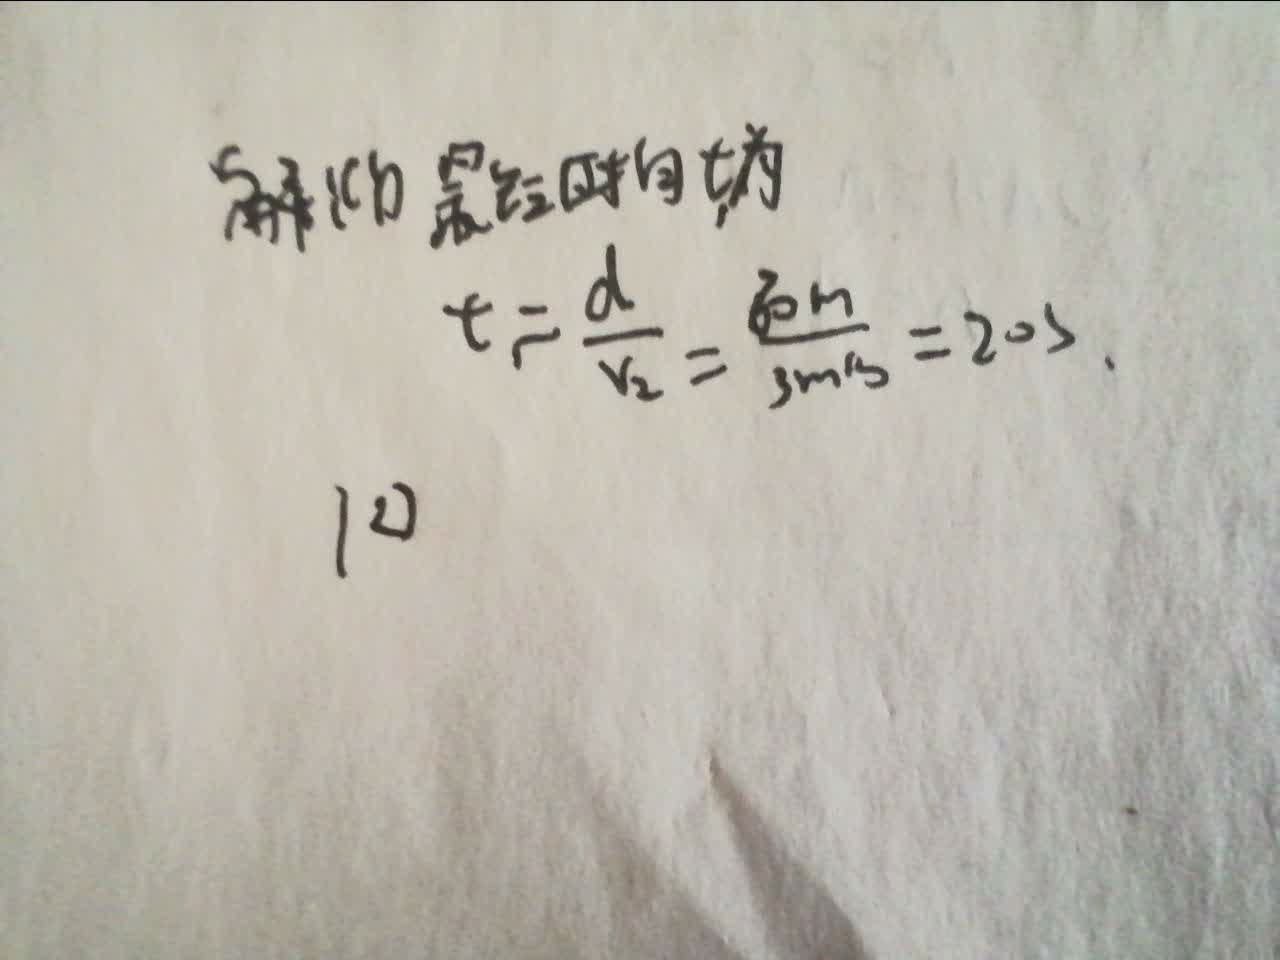 解(1)最短时间t为
t = d/v₂ = 60m/3m/s = 20s.
(2)